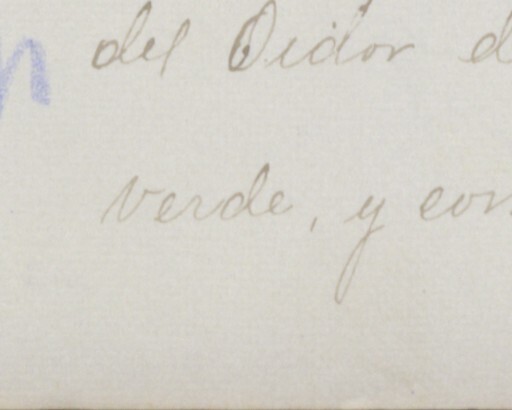 del Oidor d
verde, y con